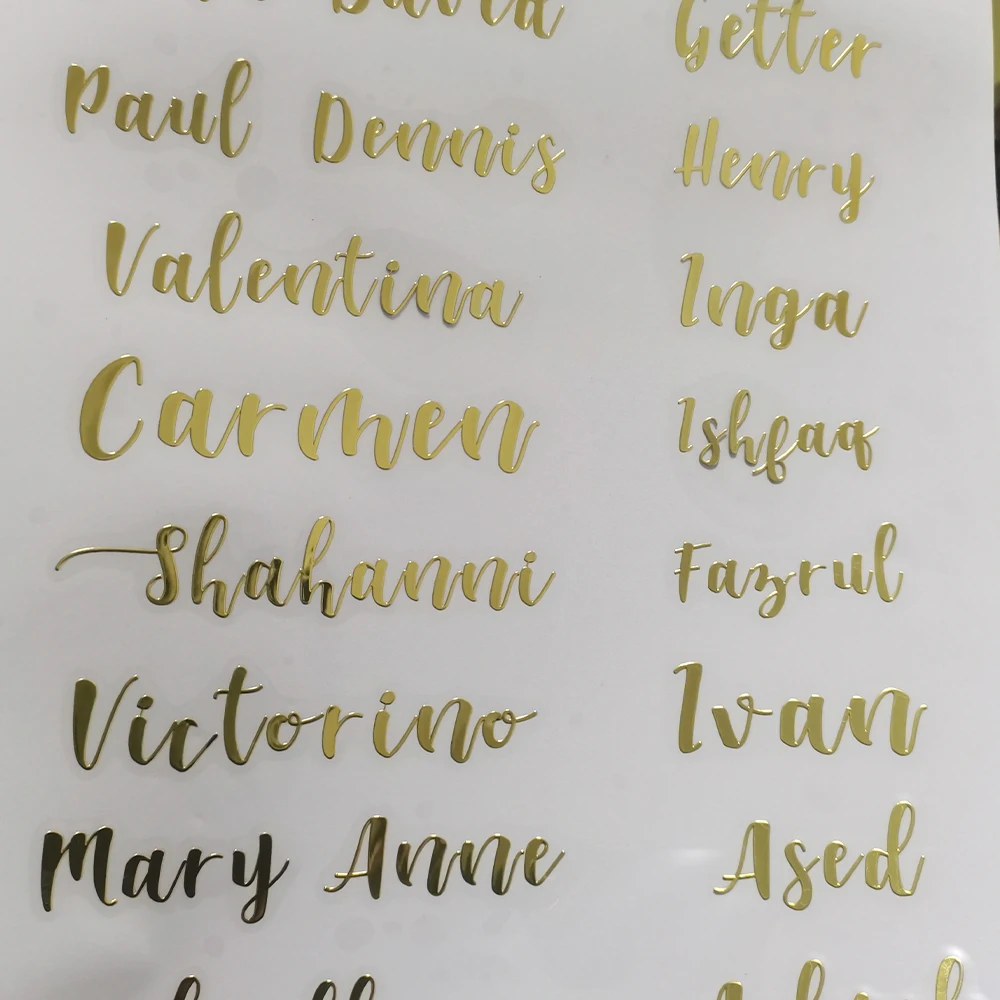 David
Paul Dennis
Valentina
Carmen
Shahanni
Victorino
Mary Anne
Getter
Henry
Inga
Ishfaq
Fazrul
Ivan
Ased